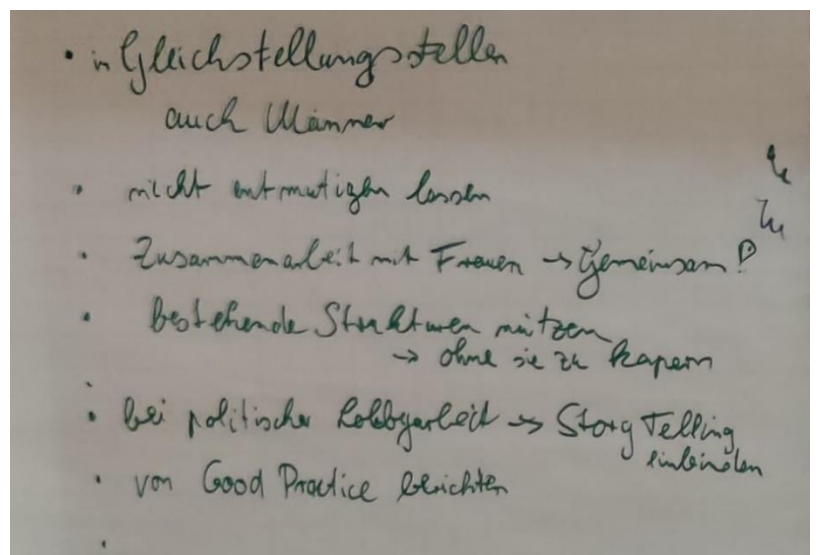 • in Gleichstellungsstellen
auch Männer
• nicht entmutigen lassen
• Zusammenarbeit mit Frauen → Gemeinsam!
• bestehende Strukturen nützen
→ ohne sie zu kapern
• bei politischer Lobbyarbeit → Story Telling
einbinden
• von Good Practice berichten
•